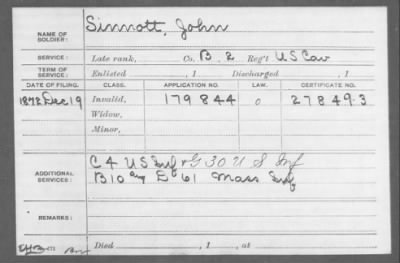 NAME OF SOLDIER: Sinnott, John
SERVICE: Late rank, Co. B. 2 Reg't U S Cav
TERM OF SERVICE: Enlisted , 1 Discharged , 1
DATE OF FILING. CLASS. APPLICATION NO. LAW. CERTIFICATE NO.
1872 Dec 19 Invalid, 179844 o 278493
Widow,
Minor,
C 4 U S Inf & G 30 U S Inf
ADDITIONAL SERVICES: B 10 & E 61 Mass Inf
REMARKS:
Died , 1 , at